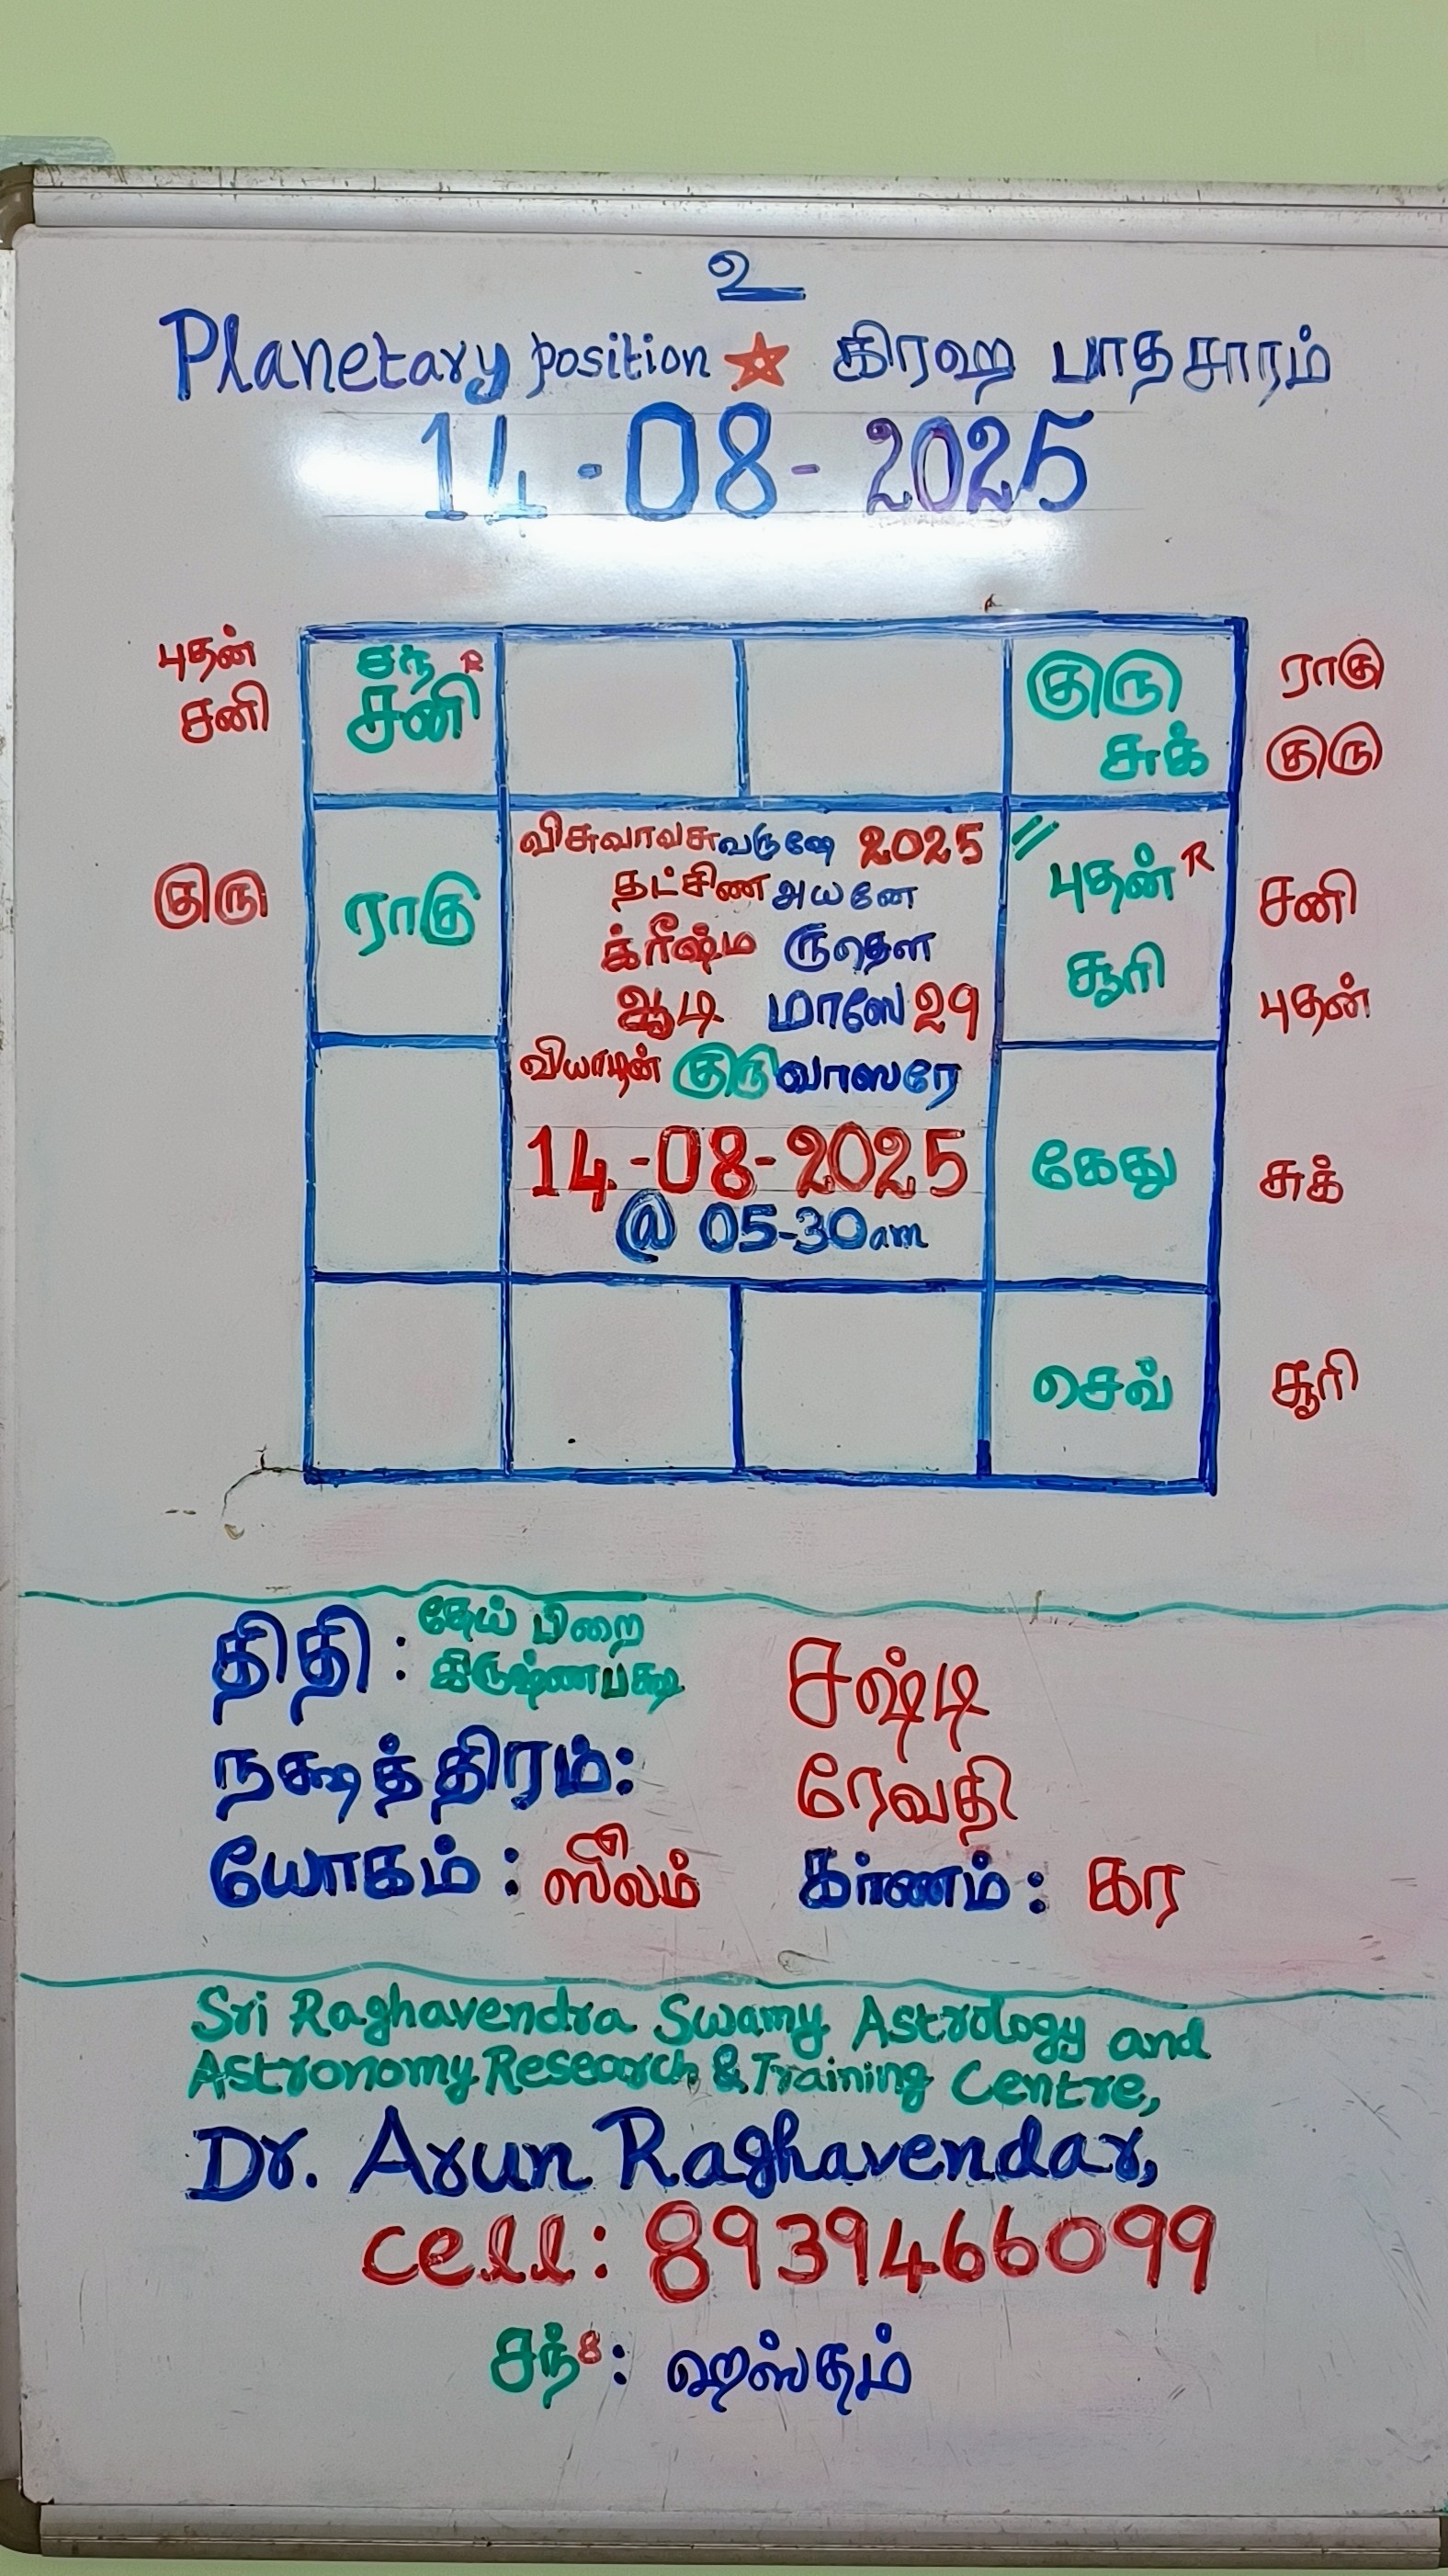 உ
Planetary position ★ கிரஹ பாதசாரம்
14-08-2025
புதன்
சனி
சந்
சனி R
குரு
சுக்
ராகு
குரு
குரு
ராகு
விசுவாவசுவருஷே 2025
தட்சிண அயனே
க்ரீஷ்ம ருதௌ
ஆடி மாஸே 29
வியாழன் குரு வாஸரே
14-08-2025
@ 05-30am
புதன் R
சூரி
சனி
புதன்
கேது
சுக்
செவ்
சூரி
திதி : தேய் பிறை
கிருஷ்ணபக்ஷ சஷ்டி
நக்ஷத்திரம்: ரேவதி
யோகம் : ஸூலம் கர்ணம் : கர
Sri Raghavendra Swamy Astrology and
Astronomy Research & Training Centre,
Dr. Arun Raghavendar,
cell: 8939466099
சந் 8 : ஹஸ்தம்